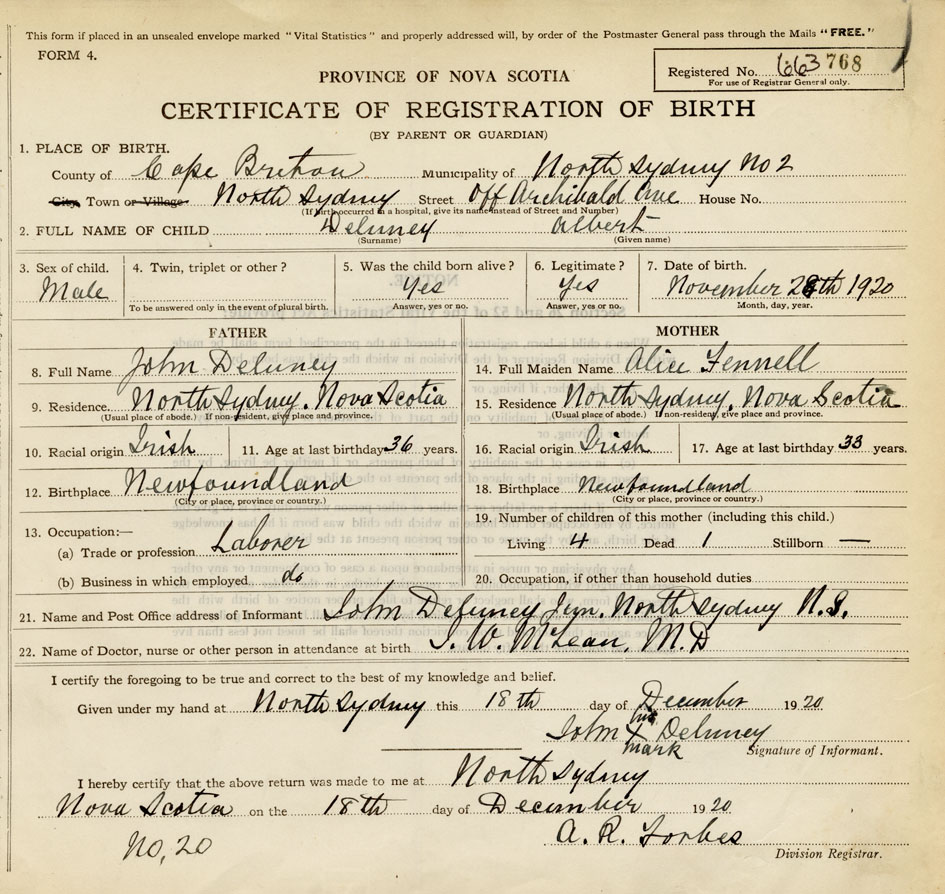 This form if placed in an unsealed envelope marked "Vital Statistics" and properly addressed will, by order of the Postmaster General pass through the Mails "FREE."
FORM 4.
Registered No. 663768
For use of Registrar General only.
PROVINCE OF NOVA SCOTIA
CERTIFICATE OF REGISTRATION OF BIRTH
(BY PARENT OR GUARDIAN)
1. PLACE OF BIRTH.
County of Cape Breton Municipality of North Sydney No 2
City, Town or Village North Sydney Street Off Archibald Ave House No.
(If birth occurred in a hospital, give its name instead of Street and Number)
2. FULL NAME OF CHILD Deluney Albert
(Surname) (Given name)
3. Sex of child. 4. Twin, triplet or other? 5. Was the child born alive? 6. Legitimate? 7. Date of birth.
Male Yes Yes November 28th 1920
To be answered only in the event of plural birth. Answer, yes or no. Answer, yes or no. Month, day, year.
FATHER
8. Full Name John Deluney
9. Residence North Sydney, Nova Scotia
(Usual place of abode.) If non-resident, give place and province.
10. Racial origin Irish 11. Age at last birthday 36 years.
12. Birthplace Newfoundland
(City or place, province or country.)
13. Occupation:—
(a) Trade or profession Laborer
(b) Business in which employed do
MOTHER
14. Full Maiden Name Alice Fennell
15. Residence North Sydney, Nova Scotia
(Usual place of abode.) If non-resident, give place and province.
16. Racial origin Irish 17. Age at last birthday 33 years.
18. Birthplace Newfoundland
(City or place, province or country.)
19. Number of children of this mother (including this child.)
Living 4 Dead 1 Stillborn —
20. Occupation, if other than household duties
21. Name and Post Office address of Informant John Deluney Jun. North Sydney N.S.
22. Name of Doctor, nurse or other person in attendance at birth J. W. McLean, M.D
I certify the foregoing to be true and correct to the best of my knowledge and belief.
Given under my hand at North Sydney this 18th day of December 1920
his
John X Deluney
mark Signature of Informant.
I hereby certify that the above return was made to me at North Sydney
Nova Scotia on the 18th day of December 1920
A. R. Forbes
No, 20
Division Registrar.